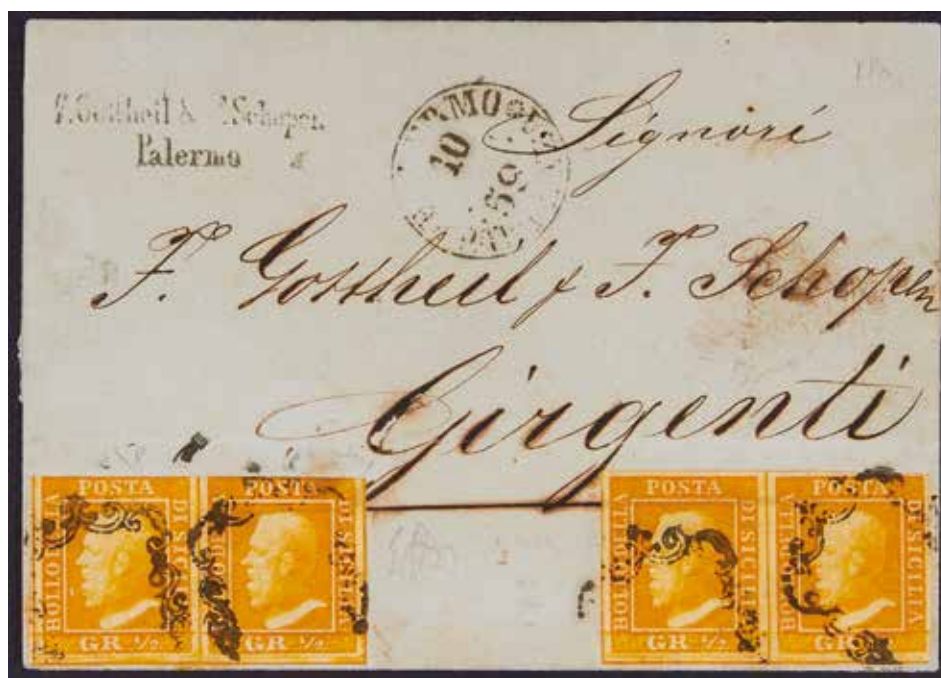 Palermo
10
Signori
F. Gottheil & F. Schopen
Girgenti
POSTA
BOLLO DELLA
DI SICILIA
GR. 1/2
POSTA
BOLLO DELLA
DI SICILIA
GR. 1/2
POSTA
BOLLO DELLA
DI SICILIA
GR. 1/2
POSTA
BOLLO DELLA
DI SICILIA
GR. 1/2